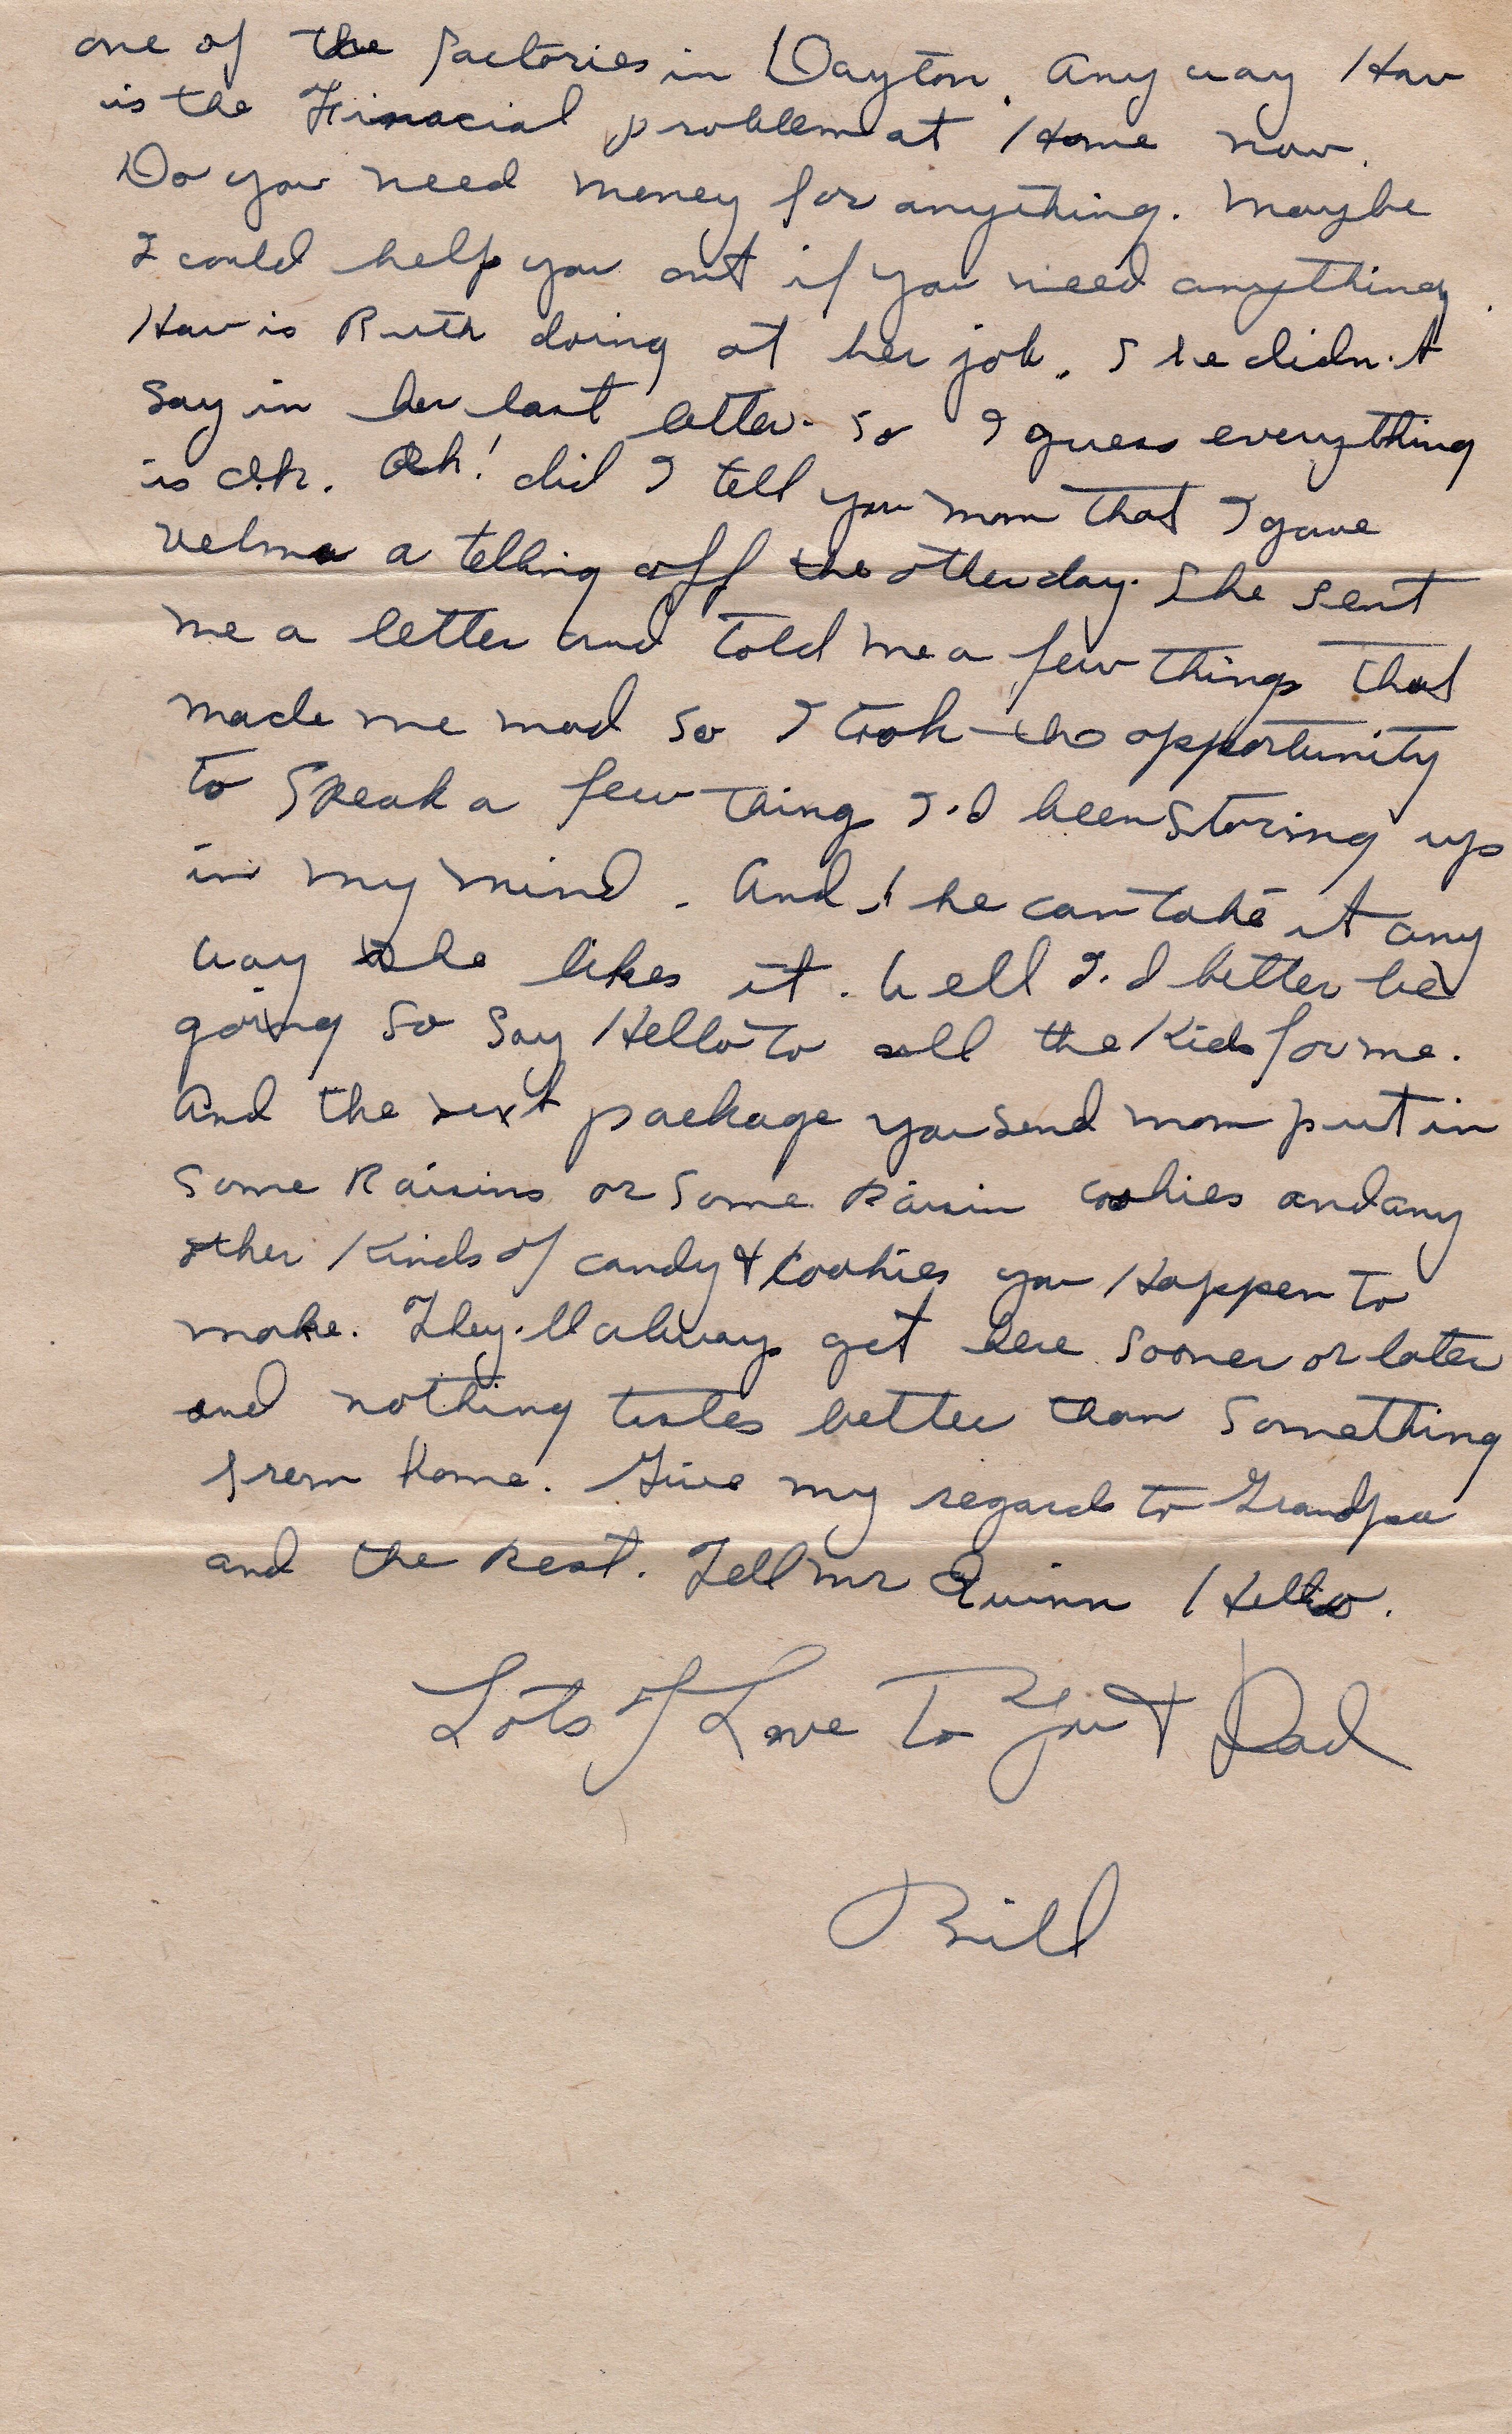 one of the factories in Dayton. Any way How
is the Finacial problem at Home now.
Do you need money for anything. Maybe
I could help you out if you need anything.
How is Ruth doing at her job. She didn't
say in her last letter. So I guess everything
is o.k. Oh! did I tell you mom that I gave
Velma a telling off the other day. She sent
me a letter and told me a few things that
made me mad so I took the opportunity
to speak a few things I'd been storing up
in my mind. And she can take it any
way she likes it. Well I'd better be
going so say Hello to all the Kids for me.
And the next package you send mom put in
some Raisins or some Raisin cookies and any
other Kinds of candy & Cookies you Happen to
make. They'll always get here sooner or later
and nothing tastes better than something
from home. Give my regards to Grandpa
and the Rest. Tell Mr Quinn Hello.
Lots of Love To You & Dad
Bill